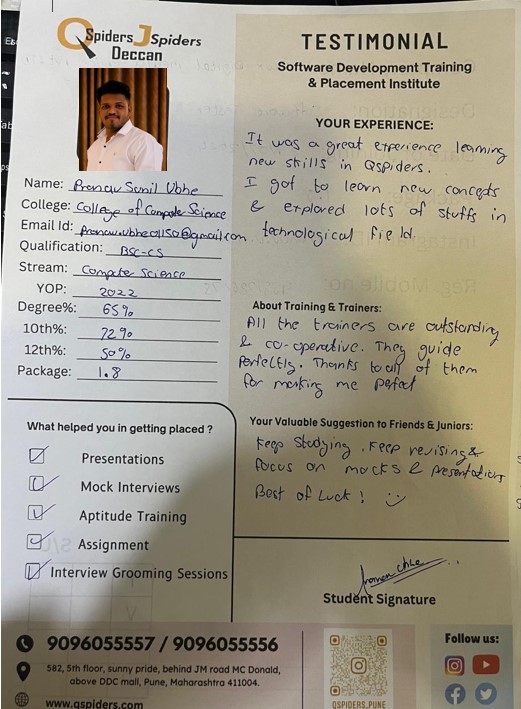 QSpiders JSpiders
Deccan
Name: Pranav Sunil Ubhe
College: College of Computer Science
Email Id: Pranav.ubhe01150@gmail.com
Qualification: BSC-CS
Stream: Computer Science
YOP: 2022
Degree%: 65%
10th%: 72%
12th%: 50%
Package: 1.8
What helped you in getting placed ?
Presentations
Mock Interviews
Aptitude Training
Assignment
Interview Grooming Sessions
TESTIMONIAL
Software Development Training
& Placement Institute
YOUR EXPERIENCE:
It was a great experience learning
new skills in QSpiders.
I got to learn new concepts
& explored lots of stuffs in
technological field.
About Training & Trainers:
All the trainers are outstanding
& co-operative. They guide
Perfectly. Thanks to all of them
for making me perfect
Your Valuable Suggestion to Friends & Juniors:
Keep Studying. Keep revising &
focus on mocks & presentations
Best of Luck !
Student Signature
9096055557 / 9096055556
582, 5th floor, sunny pride, behind JM road MC Donald,
above DDC mall, Pune, Maharashtra 411004.
www.qspiders.com
QSPIDERS.PUNE
Follow us: